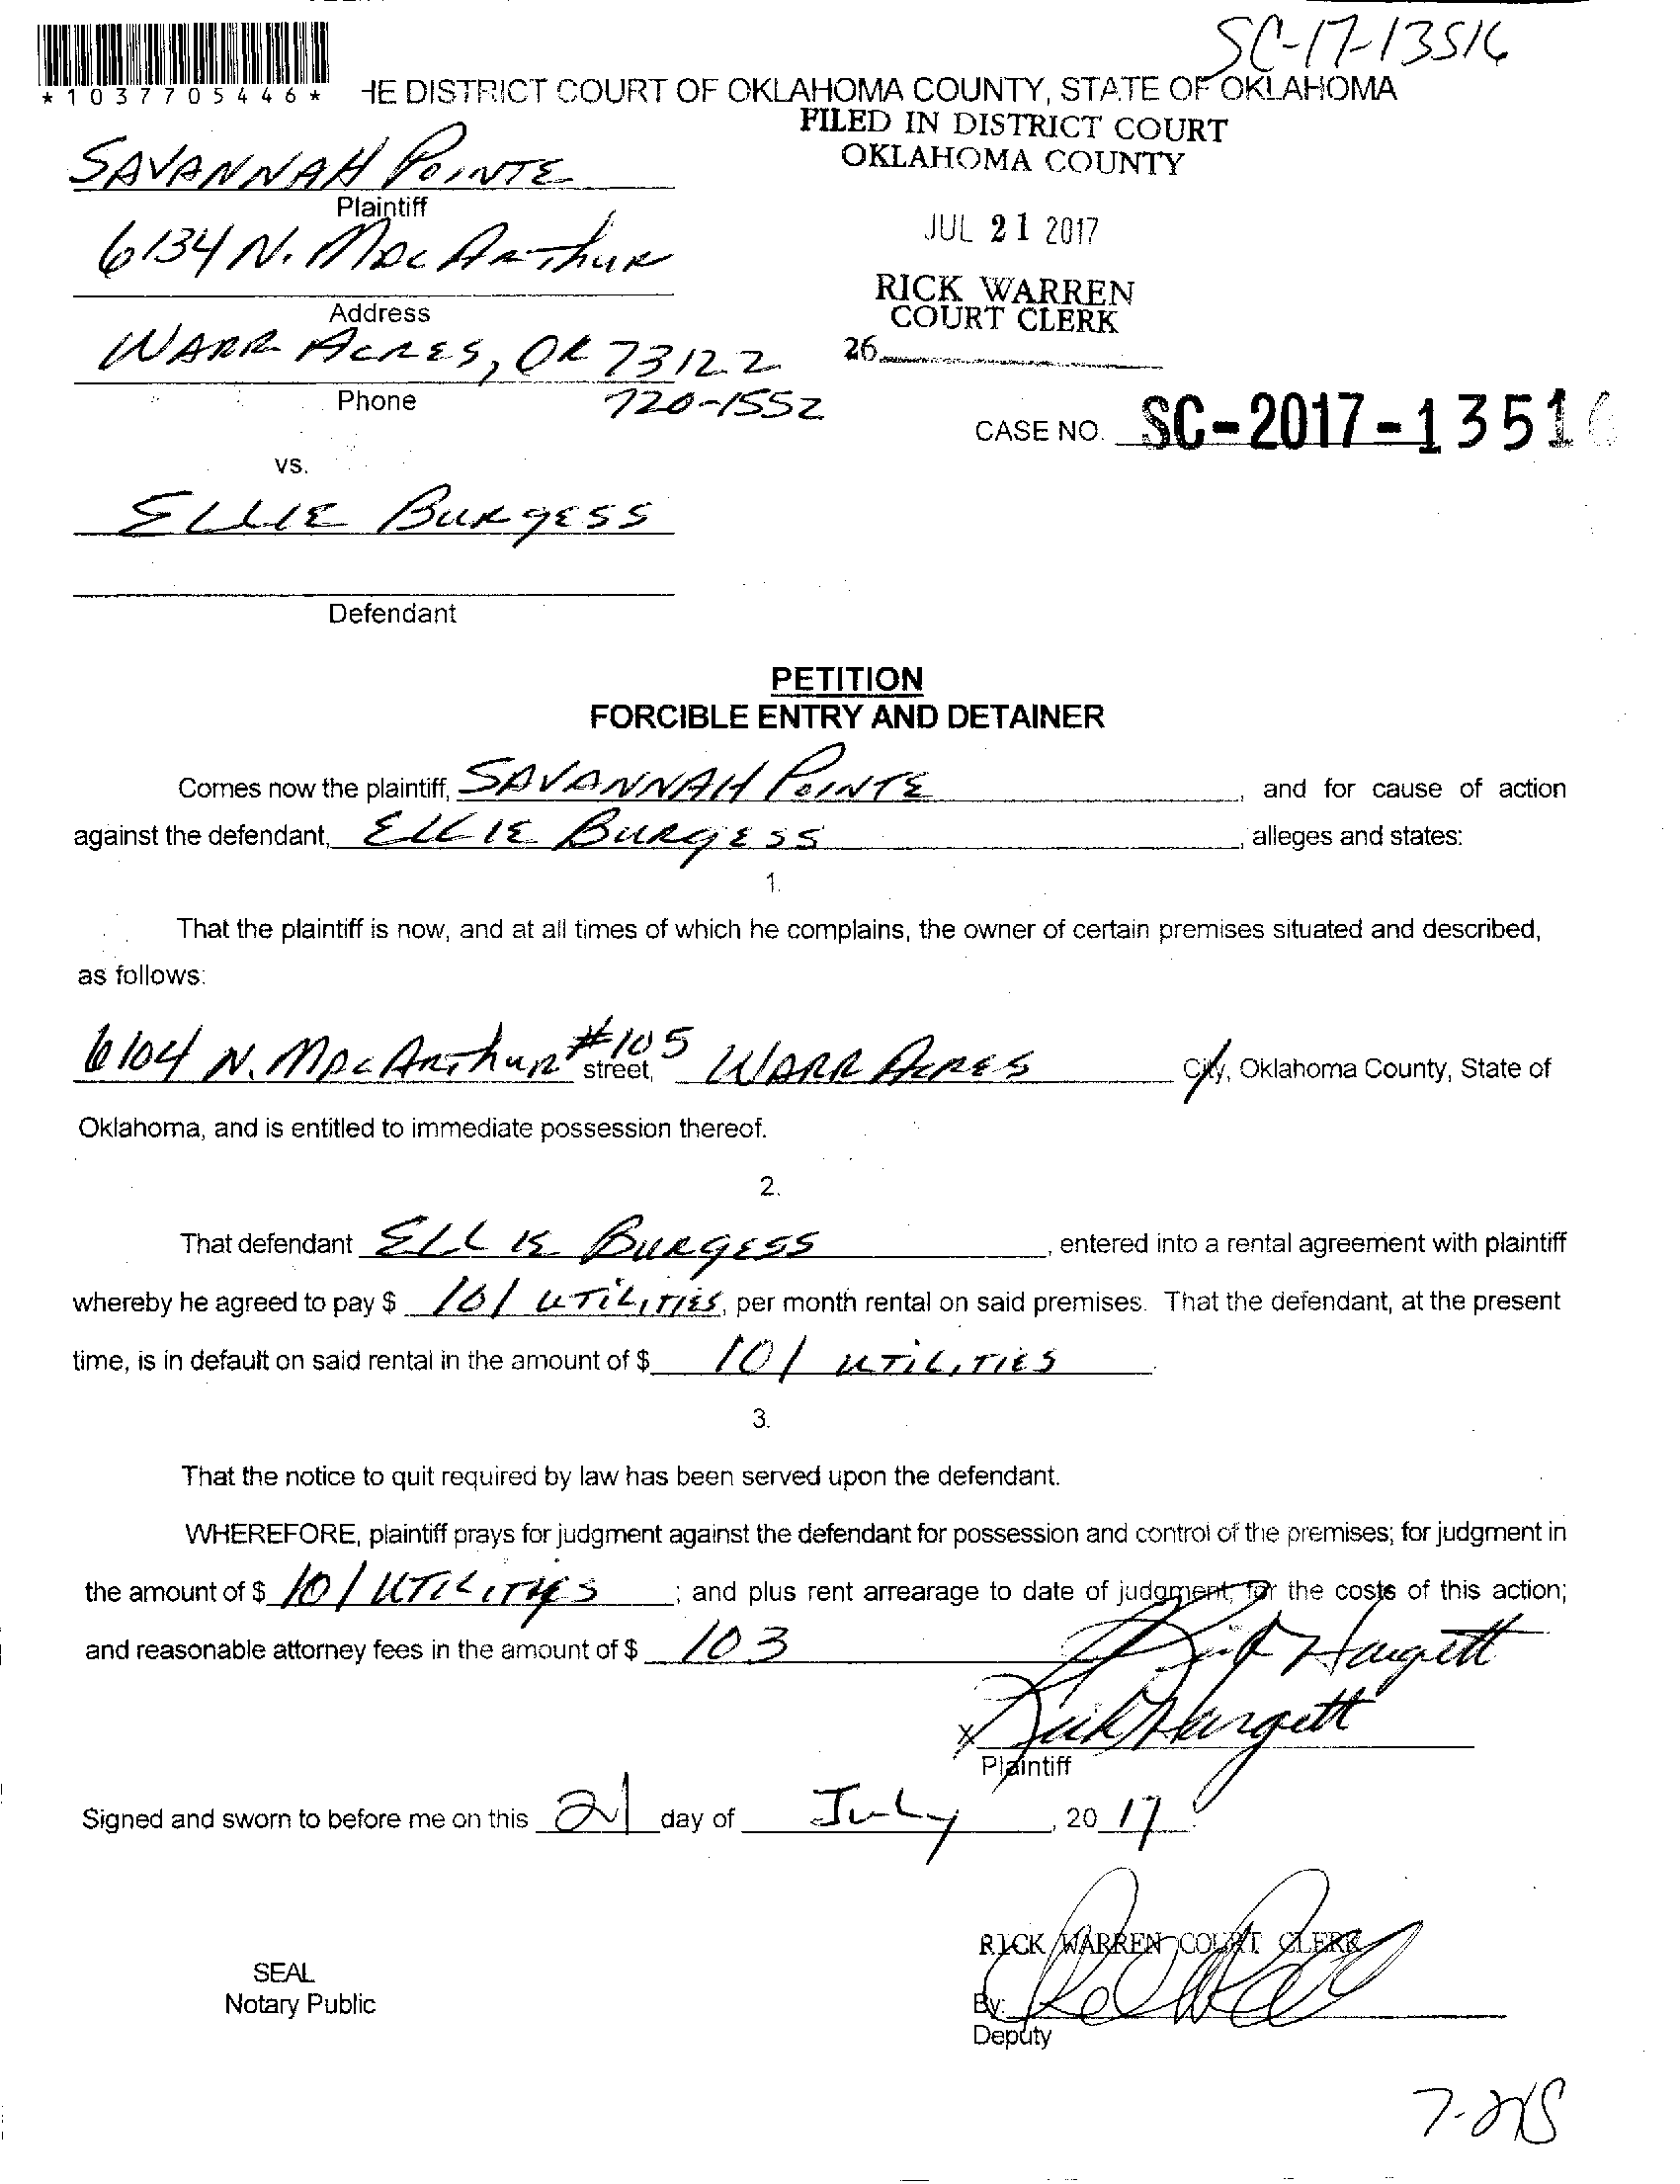 SC-17-13516
*1037705446*
HE DISTRICT COURT OF OKLAHOMA COUNTY, STATE OF OKLAHOMA
FILED IN DISTRICT COURT
OKLAHOMA COUNTY
SAVANNAH POINTE
Plaintiff
JUL 21 2017
6134 N. MacArthur
Address
RICK WARREN
COURT CLERK
WARR ACRES, OK 73122
26
Phone 720-1552
CASE NO. SC-2017-13516
vs.
ELLIE BURGESS
Defendant
PETITION
FORCIBLE ENTRY AND DETAINER
Comes now the plaintiff, SAVANNAH POINTE, and for cause of action
against the defendant, ELLIE BURGESS, alleges and states:
1.
That the plaintiff is now, and at all times of which he complains, the owner of certain premises situated and described,
as follows:
6104 N. MacArthur #105 street, WARR ACRES City, Oklahoma County, State of
Oklahoma, and is entitled to immediate possession thereof.
2.
That defendant ELLIE BURGESS, entered into a rental agreement with plaintiff
whereby he agreed to pay $ 101 UTILITIES, per month rental on said premises. That the defendant, at the present
time, is in default on said rental in the amount of $ 101 UTILITIES.
3.
That the notice to quit required by law has been served upon the defendant.
WHEREFORE, plaintiff prays for judgment against the defendant for possession and control of the premises; for judgment in
the amount of $ 101 UTILITIES; and plus rent arrearage to date of judgment, for the costs of this action;
and reasonable attorney fees in the amount of $ 103
Rick Hargett
X Rick Hargett
Plaintiff
Signed and sworn to before me on this 21 day of July, 2017.
RICK WARREN COURT CLERK
SEAL
Notary Public
By:
Deputy